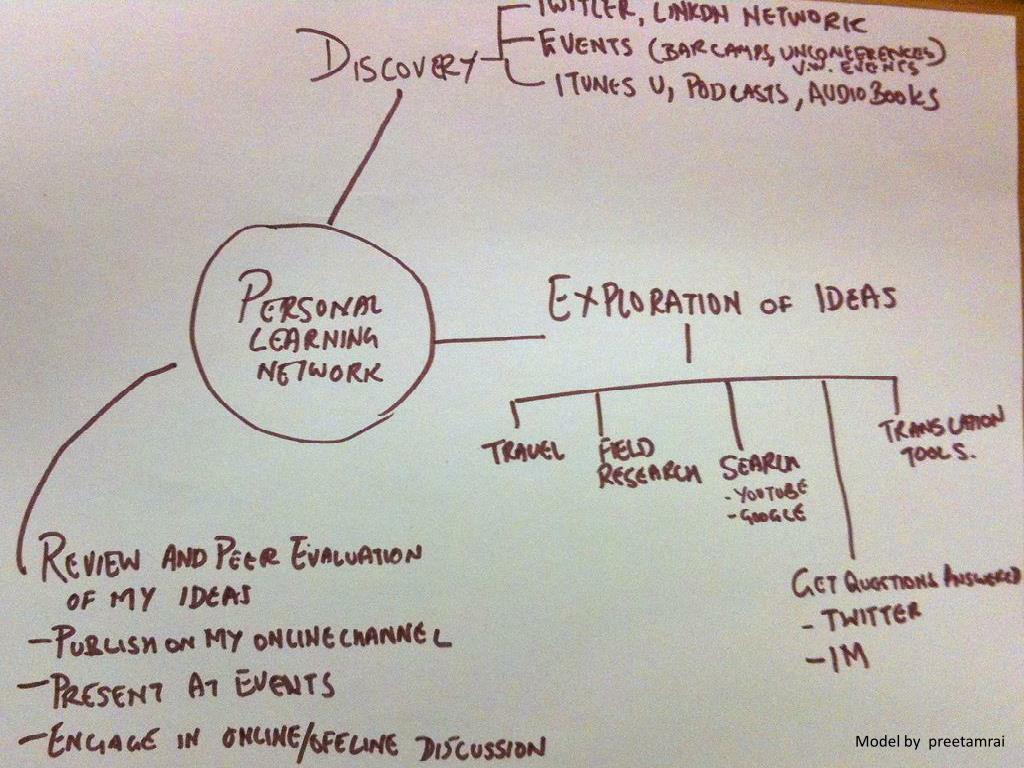 TWITTER, LINKDN NETWORK
DISCOVERY
EVENTS (BARCAMPS, UNCONFERENCES)
V.W. EVENTS
ITUNES U, PODCASTS, AUDIOBOOKS
PERSONAL
LEARNING
NETWORK
EXPLORATION OF IDEAS
TRAVEL
FIELD
RESEARCH
SEARCH
- YOUTUBE
- GOOGLE
TRANSLATION
TOOLS.
GET QUESTIONS ANSWERED
- TWITTER
- IM
REVIEW AND PEER EVALUATION
OF MY IDEAS
- PUBLISH ON MY ONLINE CHANNEL
- PRESENT AT EVENTS
- ENGAGE IN ONLINE/OFFLINE DISCUSSION
Model by preetamrai